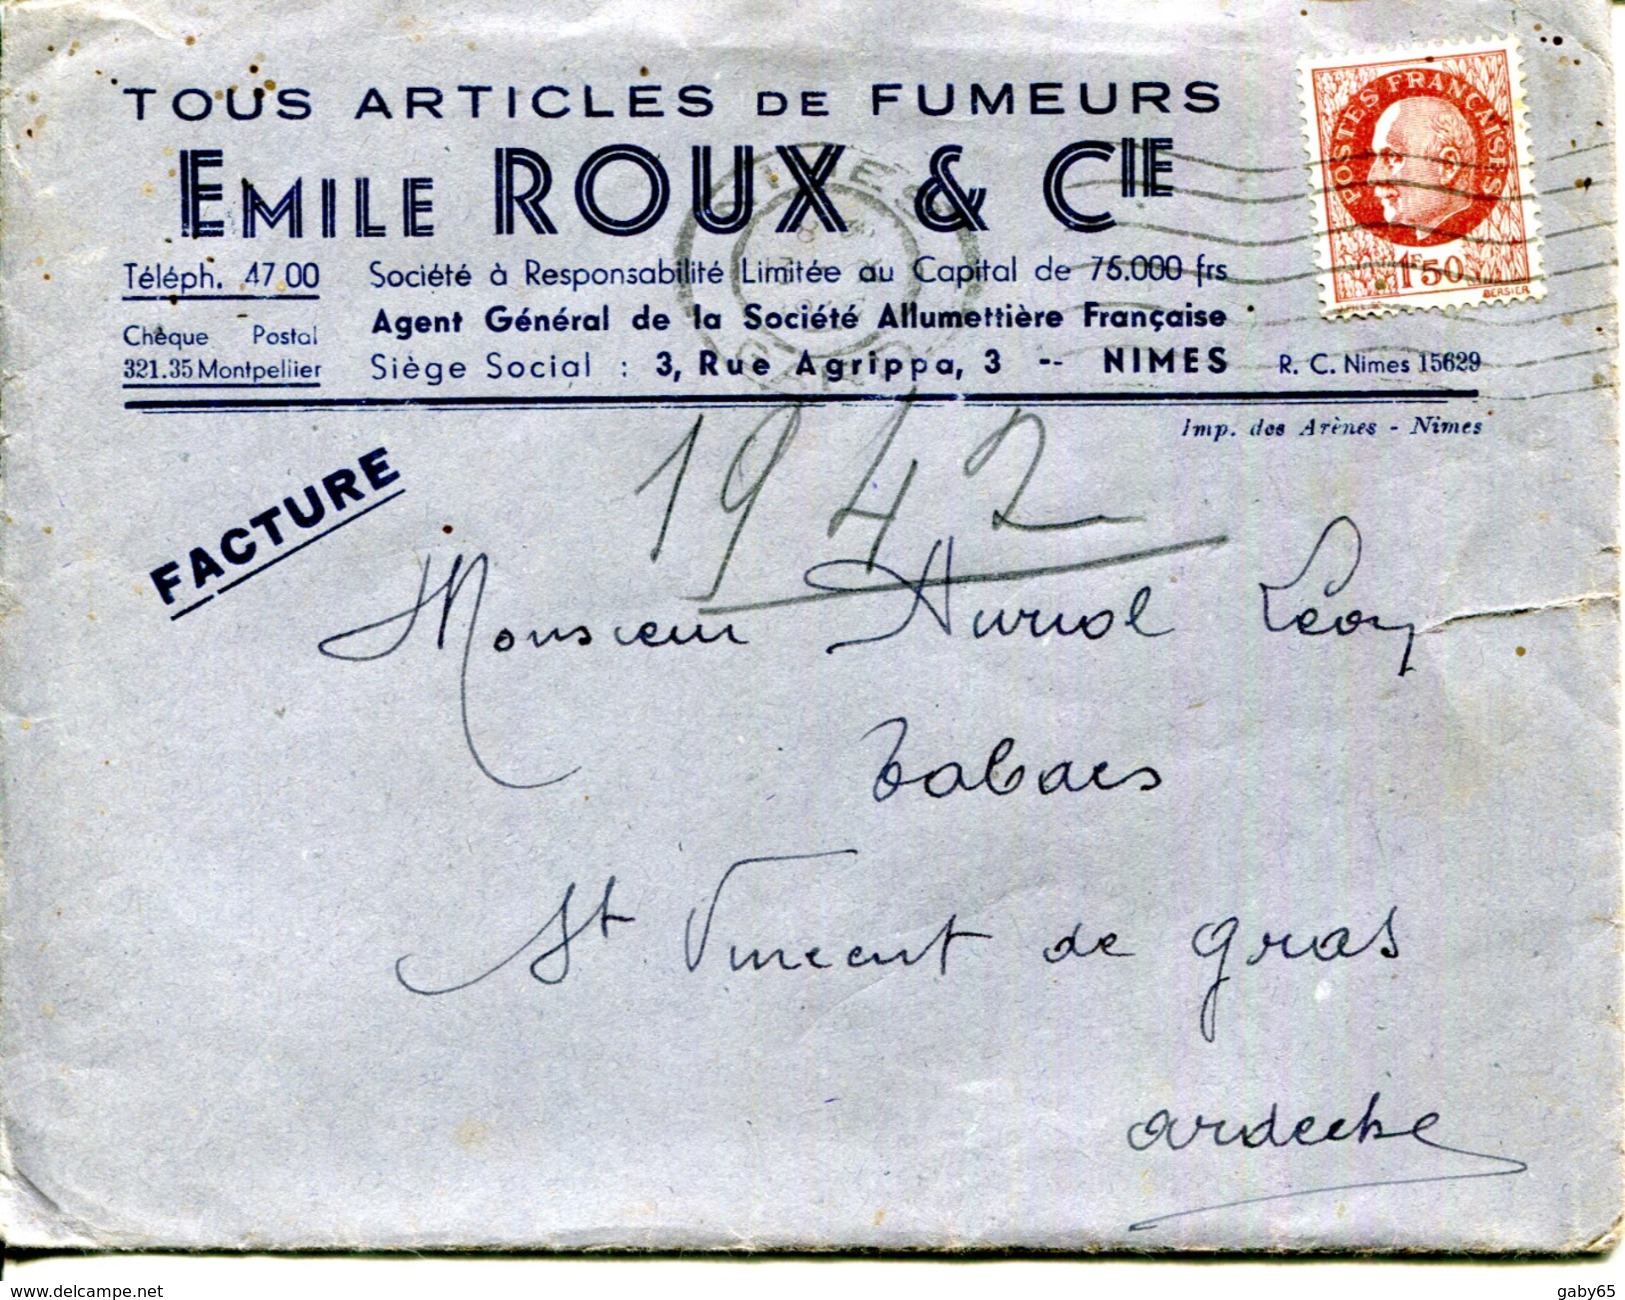 TOUS ARTICLES DE FUMEURS
EMILE ROUX & CIE
Téléph. 47.00 Société à Responsabilité Limitée au Capital de 75.000 frs
Agent Général de la Société Allumettière Française
Chèque Postal
321.35 Montpellier
Siège Social : 3, Rue Agrippa, 3 -- NIMES R. C. Nimes 15629
Imp. des Arènes - Nimes
POSTES FRANÇAISES
1F50
BERSIER
NIMES
GARD
FACTURE
1942
Monsieur Auriol Léon
Tabacs
St Vincent de Gras
Ardeche
delcampe.net
gaby65